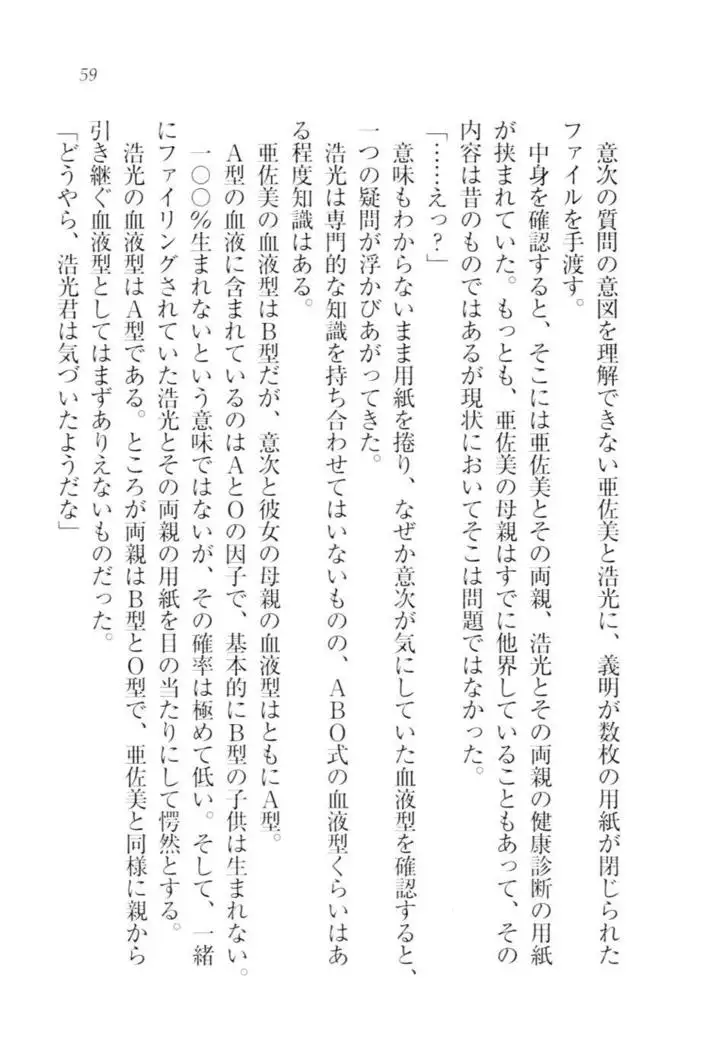 59
意次の質問の意図を理解できない亜佐美と浩光に、義明が数枚の用紙が閉じられた
ファイルを手渡す。
中身を確認すると、そこには亜佐美とその両親、浩光とその両親の健康診断の用紙
が挟まれていた。もっとも、亜佐美の母親はすでに他界していることもあって、その
内容は昔のものではあるが現状においてそこは問題ではなかった。
「……えっ？」
意味もわからないまま用紙を捲り、なぜか意次が気にしていた血液型を確認すると、
一つの疑問が浮かびあがってきた。
浩光は専門的な知識を持ち合わせてはいないものの、ＡＢＯ式の血液型くらいはあ
る程度知識はある。
亜佐美の血液型はＢ型だが、意次と彼女の母親の血液型はともにＡ型。
Ａ型の血液に含まれているのはＡとＯの因子で、基本的にＢ型の子供は生まれない。
一〇〇％生まれないという意味ではないが、その確率は極めて低い。そして、一緒
にファイリングされていた浩光とその両親の用紙を目の当たりにして愕然とする。
浩光の血液型はＡ型である。ところが両親はＢ型とＯ型で、亜佐美と同様に親から
引き継ぐ血液型としてはまずありえないものだった。
「どうやら、浩光君は気づいたようだな」